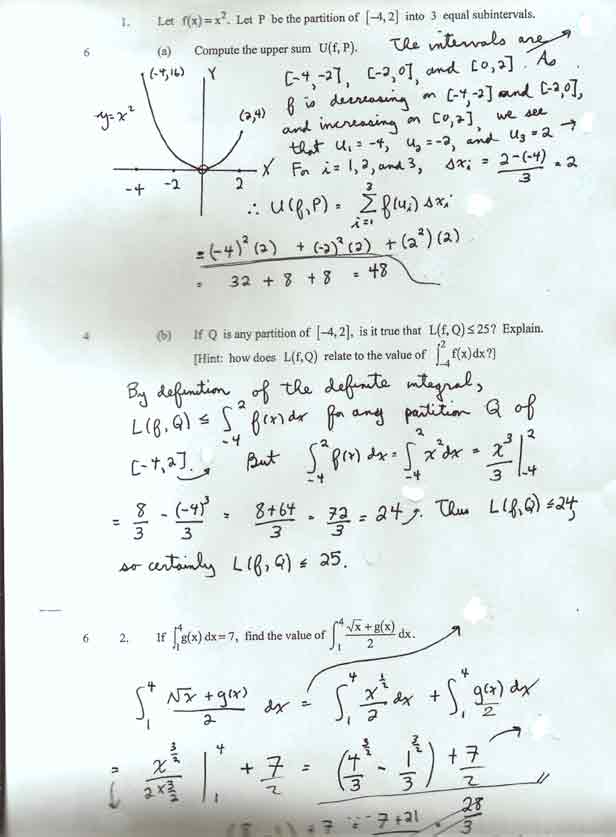 1. Let f(x) = x². Let P be the partition of [−4, 2] into 3 equal subintervals.
6 (a) Compute the upper sum U(f, P). The intervals are
[-4,-2], [-2,0], and [0,2]. As
f is decreasing on [-4,-2] and [-2,0],
and increasing on [0,2], we see
that u₁ = -4, u₂ = -2, and u₃ = 2 →
For i = 1, 2, and 3, Δxᵢ = (2-(-4))/3 = 2
(-4,16) Y
y = x²
(2,4)
X
-4 -2 2
∴ U(f,P) = Σ_{i=1}^{3} f(uᵢ) Δxᵢ
= (-4)²(2) + (-2)²(2) + (2²)(2)
= 32 + 8 + 8 = 48
4 (b) If Q is any partition of [−4, 2], is it true that L(f, Q) ≤ 25? Explain.
[Hint: how does L(f,Q) relate to the value of ∫_{-4}^{2} f(x)dx?]
By definition of the definite integral,
L(f,Q) ≤ ∫_{-4}^{2} f(x) dx for any partition Q of
[-4,2]. But ∫_{-4}^{2} f(x) dx = ∫_{-4}^{2} x² dx = x³/3 |_{-4}^{2}
= 8/3 - (-4)³/3 = (8+64)/3 = 72/3 = 24. Thus L(f,Q) ≤ 24,
so certainly L(f,Q) ≤ 25.
6 2. If ∫_{1}^{4} g(x) dx = 7, find the value of ∫_{1}^{4} (√x + g(x))/2 dx.
∫_{1}^{4} (√x + g(x))/2 dx = ∫_{1}^{4} x^{1/2}/2 dx + ∫_{1}^{4} g(x)/2 dx
= x^{3/2}/(2×3/2) |_{1}^{4} + 7/2 = (4^{3/2}/3 - 1^{3/2}/3) + 7/2
7 + 21 28/3